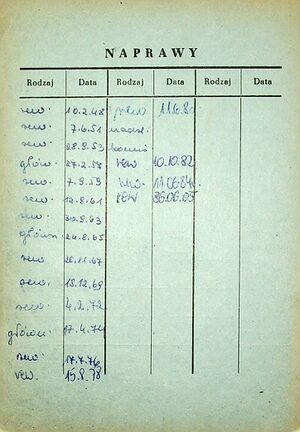 NAPRAWY
Rodzaj Data Rodzaj Data Rodzaj Data
rew. 10.2.48 rew 11.6.80
rew. 7.6.51
rew. 28.9.53
główn. 27.2.58 rew 10.10.82
rew. 7.9.59 rew. 11.06.84
rew. 12.8.61 rew 06.05
30.9.63
główn. 24.8.65
rew 20.11.67
rew. 15.12.69
rew. 4.2.72
główn. 17.4.74
rew. 17.7.76
rew. 15.8.78